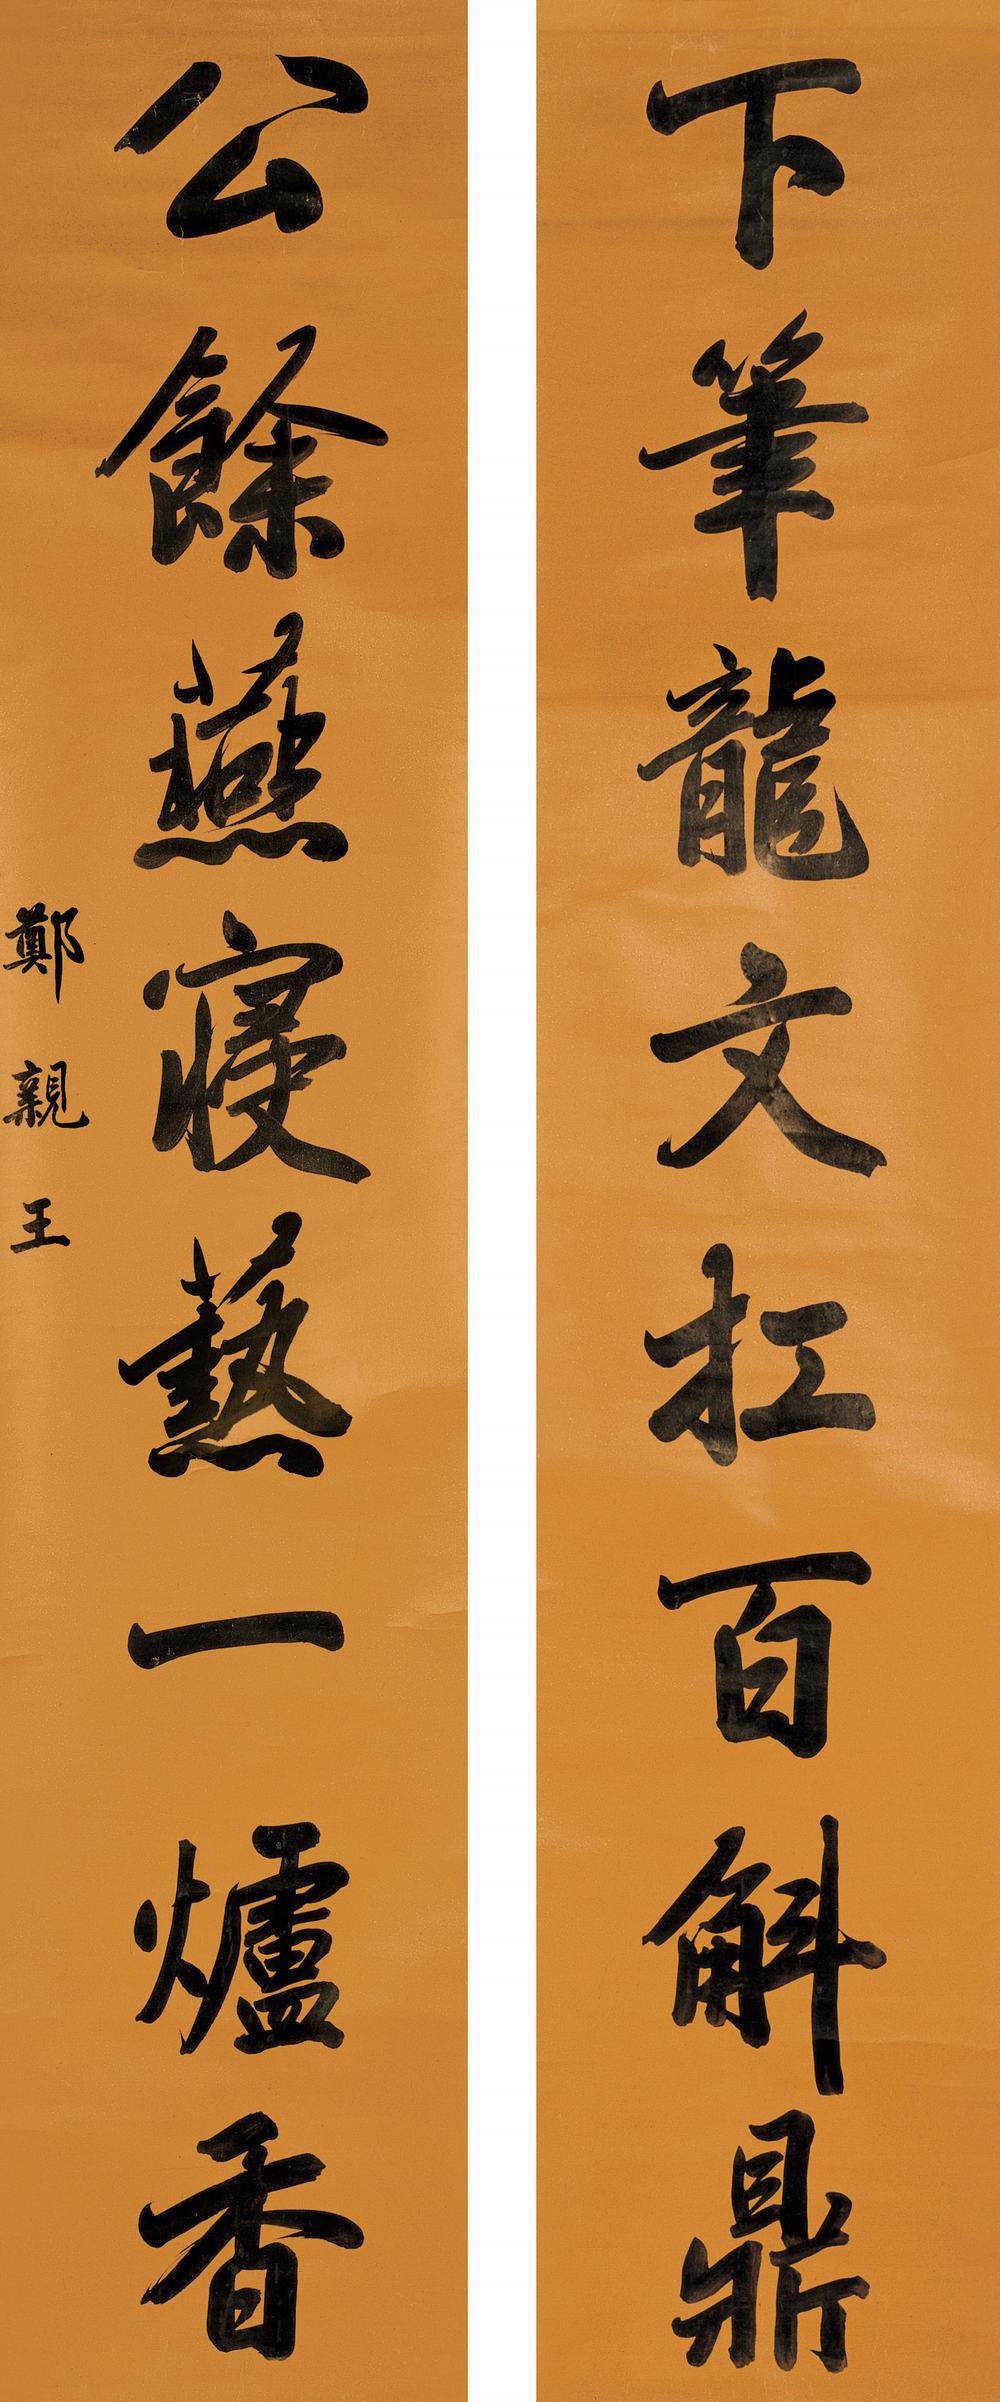 下筆龍文扛百斛鼎
公餘燕寝爇一爐香
鄭親王